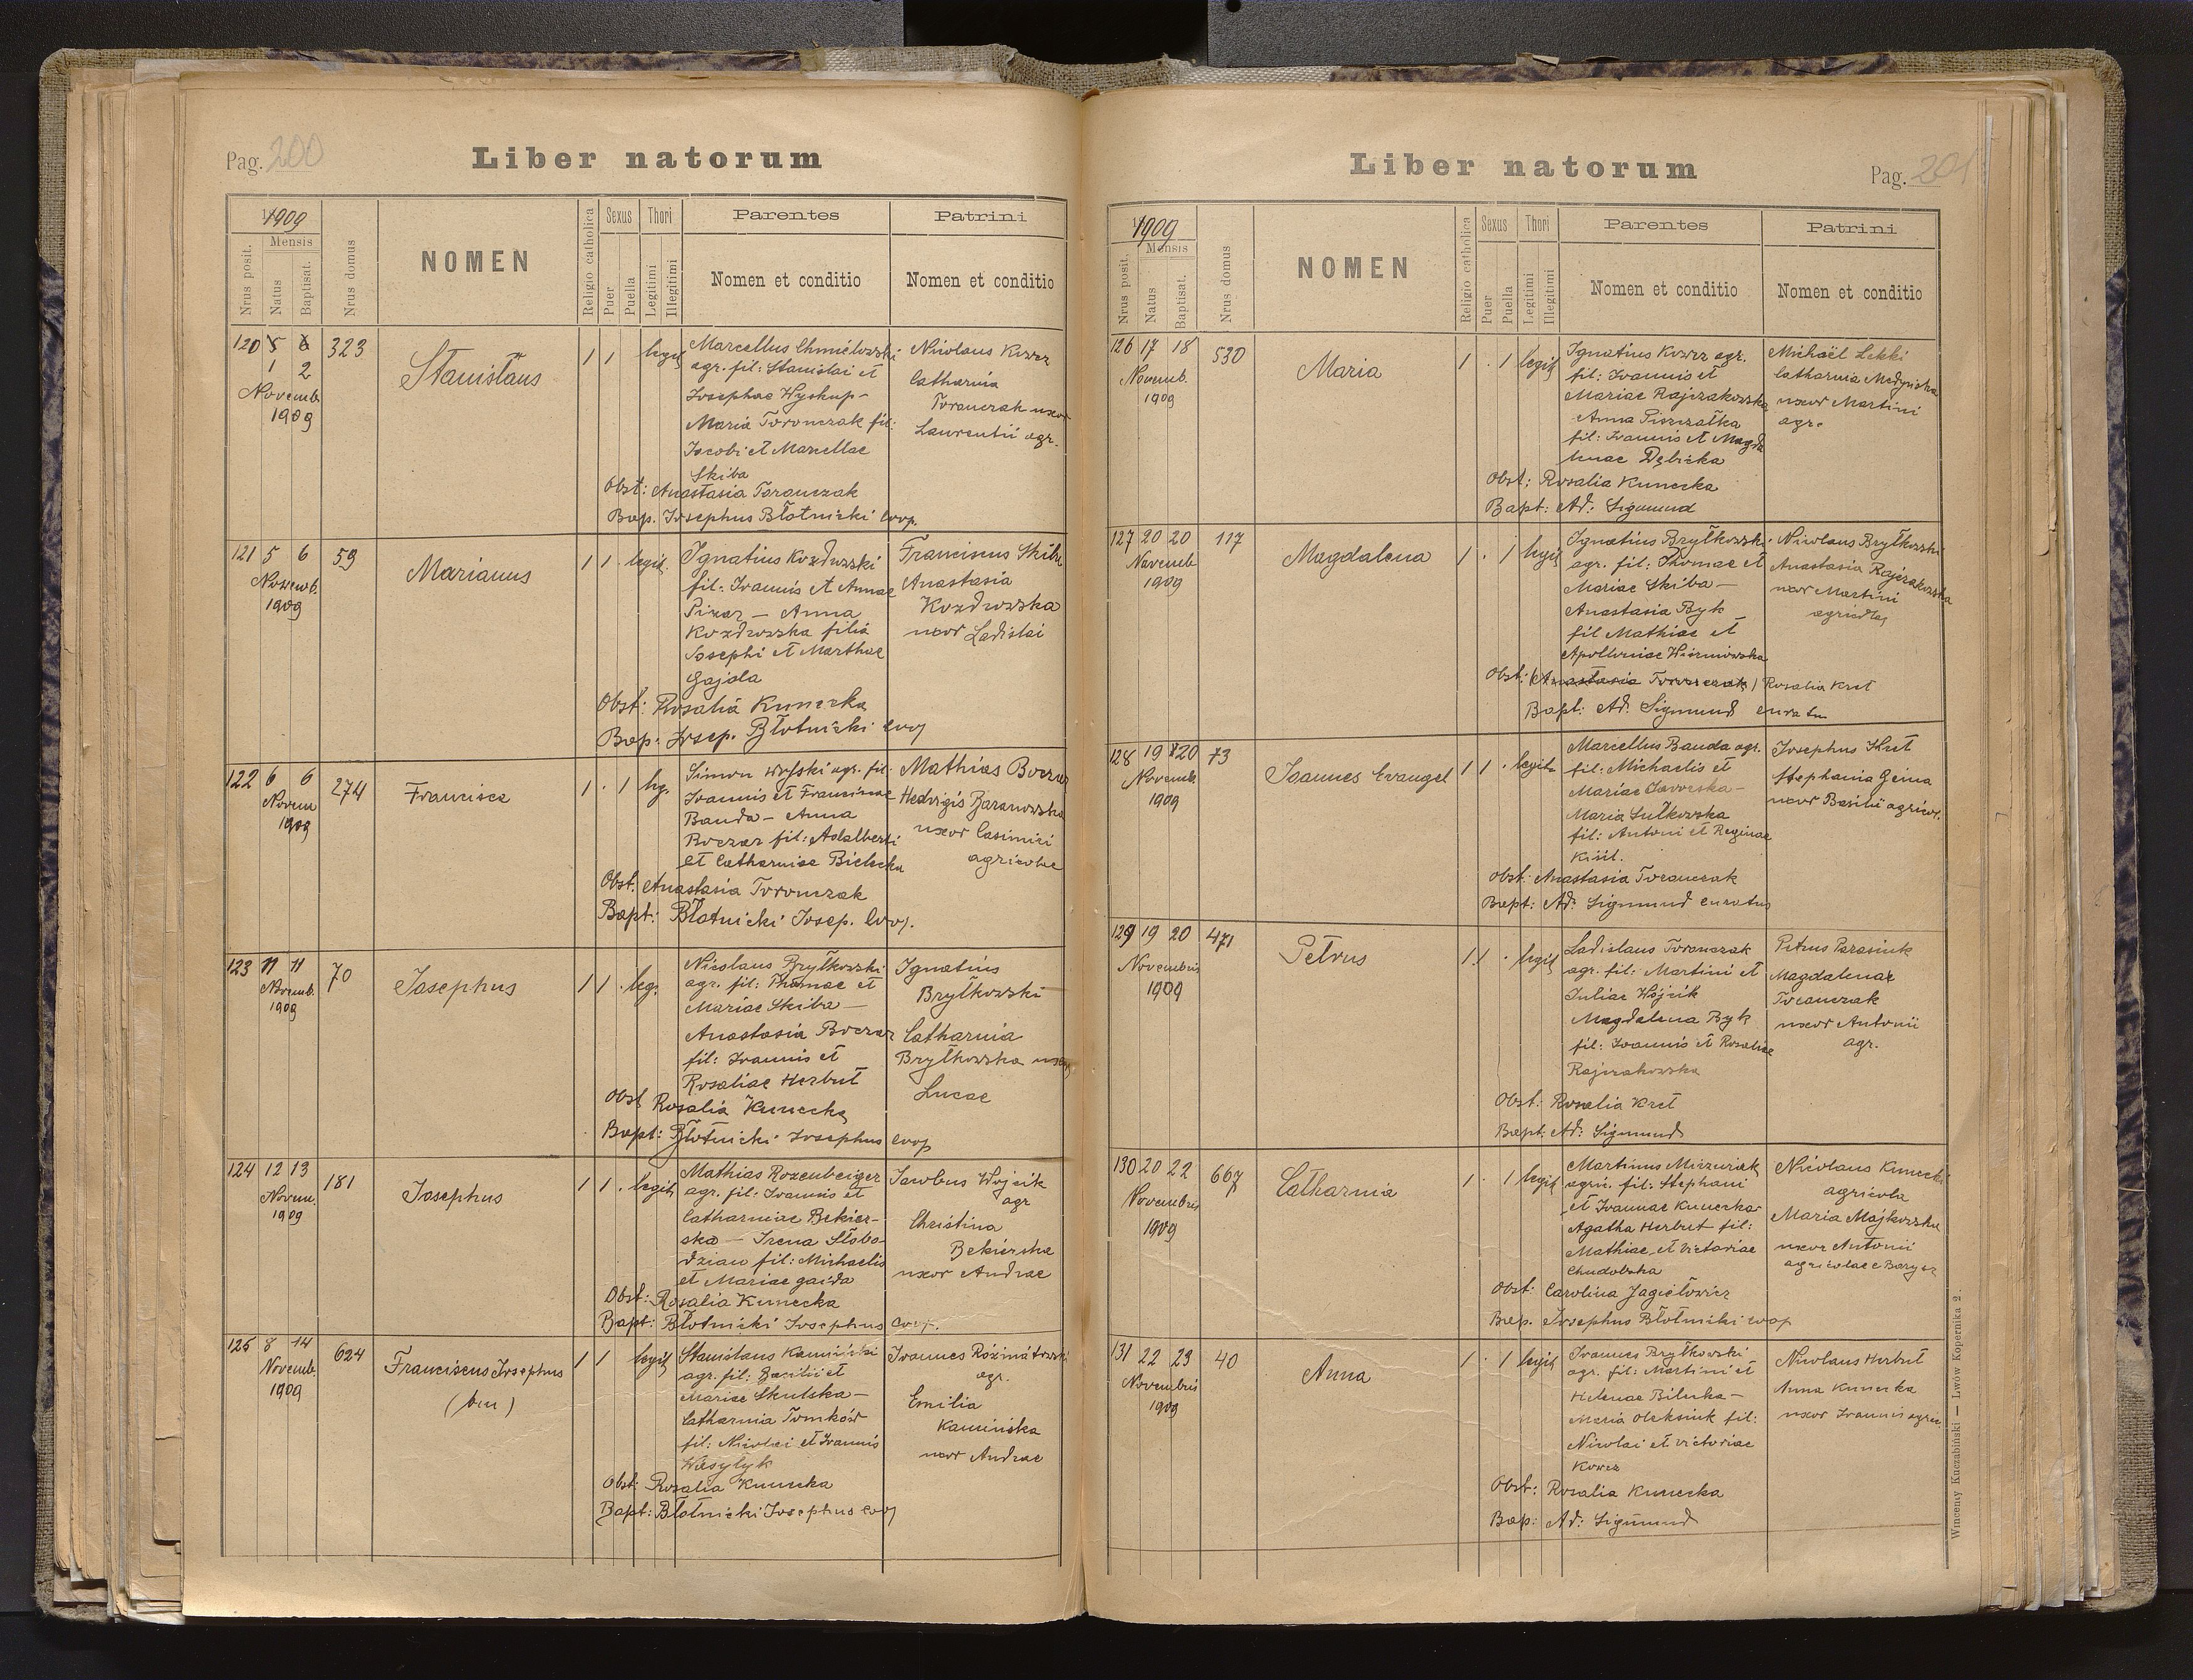 Pag. 200
Liber natorum
1909
Mensis
Nrus posit.
Natus
Baptisat.
Nrus domus
NOMEN
Religio catholica
Sexus
Puer
Puella
Thori
Legitimi
Illegitimi
Parentes
Nomen et conditio
Patrini
Nomen et conditio
120 5 6 323
1 2
Novemb.
1909
Stanislaus
1 1 legit
Marcellus Chmielowski
agr. fil: Stanislai et
Josephae Wyskup -
Maria Toronczak fil:
Jacobi et Marcellae
Skiba
Nicolaus Kowcz
Catharina
Toronczak uxor
Laurentii agr.
Obst: Anastasia Toronczak
Bap. Josephus Błotnicki coop.
121 5 6 59
Novemb.
1909
Marianus
1 1 . legit.
Ignatius Kozdrowski
fil: Joannis et Annae
Pirar - Anna
Kozdrowska filia
Josephi et Marthae
Gajda
Franciscus Skiba
Anastasia
Kozdrowska
uxor Ladislai
Obst: Rosalia Kunecka
Bap: Josep. Błotnicki coop
122 6 6 274
Novem
1909
Francisca
1 . 1 leg.
Simon agr. fil:
Joannis et Franciscae
Bauda - Anna
Boczar fil: Adalberti
et Catharinae Bielecka
Mathias Boczar
Hedvigis Baranowska
uxor Casimiri
agricolae
Obst. Anastasia Toronczak
Bapt: Błotnicki Josep. Coop.
123 11 11 70
Novemb.
1909
Josephus
1 1 . leg.
Nicolaus Brylkowski
agr. fil: Thomae et
Mariae Skiba -
Anastasia Boczar
fil: Joannis et
Rosaliae Herbut
Ignatius
Brylkowski
Catharina
Brylkowska uxor
Lucae
Obst Rosalia Kunecka
Bapt: Błotnicki Josephus coop
124 12 13 181
Novem.
1909
Josephus
1 1 . legit
Mathias Rozenberger
agr. fil: Joannis et
Catharinae Bekier-
ska - Irena Słobo-
dzian fil: Michaelis
et Mariae gaida
Jacobus Wojcik
agr
Christina
Bekierska
uxor Andreae
Obst: Rosalia Kunecka
Bapt: Błotnicki Josephus coop.
125 8 14 624
Novemb.
1909
Franciscus Josephus
(bin)
1 1 legit
Stanislaus Kamiński
agr. fil: Basilii et
Mariae Skulska -
Catharina Tomków
fil: Nicolai et Joannis
Wasylyk
Joannes
agr.
Emilia
Kamińska
uxor Andreae
Obst: Rosalia Kunecka
Bapt: Błotnicki Josephus coop
Liber natorum
Pag. 201
1909
Mensis
Nrus posit.
Natus
Baptisat.
Nrus domus
NOMEN
Religio catholica
Sexus
Puer
Puella
Thori
Legitimi
Illegitimi
Parentes
Nomen et conditio
Patrini
Nomen et conditio
126 17 18 530
Novemb.
1909
Maria
1 . 1 legit
Ignatius Kowcz agr.
fil: Joannis et
Mariae Rajzakowska
Anna Piszczatka
fil: Joannis et Magda
lenae Dębicka
Michaël Lekki
Catharina Medyńska
uxor Martini
agr.
Obst: Rosalia Kunecka
Bapt: Ad: Sigmund
127 20 20 117
Novemb
1909
Magdalena
1 . 1 legit
Ignatius Brylkowski
agr. fil: Thomae et
Mariae Skiba -
Anastasia Byk
fil Mathiae et
Apolloniae Wiśniowska
Nicolaus Brylkowski
Anastasia Rajzakowska
uxor Martini
agricolae
Obst: (Anastasia Toronczak) Rosalia Kret
Bapt: Ad: Sigmund curatus
128 19 20 73
Novemb.
1909
Joannes Evangel
1 1 . legit
Marcellus Bauda agr.
fil: Michaelis et
Mariae Jaworska -
Maria Sułkowska
fil: Antoni et Reginae
Kisil.
Josephus Kret
Stephania Geina
uxor Basilii agricol.
Obst: Anastasia Toronczak
Bapt: Ad: Sigmund curatus
129 19 20 471
Novembris
1909
Petrus
1 1 . legit
Ladislaus Toronczak
agr. fil: Martini et
Juliae Wójcik
Magdalena Byk
fil: Joannis et Rosaliae
Rajzakowska
Petrus Parasiuk
Magdalenae
Toronczak
uxor Antonii
agr.
Obst: Rosalia Kret
Bapt: Ad: Sigmund
130 20 22 667
Novembris
1909
Catharina
1 . 1 legit
Martinus Mizuriak
agric. fil: Stephani
et Joannae Kunecka
Agatha Herbut fil:
Mathiae et Victoriae
Chudobska
Nicolaus Kunecki
agricola
Maria Majkowska
uxor Antonii
agricolae
Obst: Carolina Jagiełowicz
Bap. Josephus Błotnicki coop
131 22 23 40
Novembris
1909
Anna
1 . 1 legit
Joannes Brylkowski
agr. fil: Martini et
Helenae Bilecka -
Maria Oleksiuk fil:
Nicolai et Victoriae
Kowcz
Nicolaus Herbut
Anna Kunecka
uxor Joannis agric.
Obst: Rosalia Kunecka
Bap: Ad: Sigmund
Wincenty Kuczabiński — Lwów Kopernika 2.